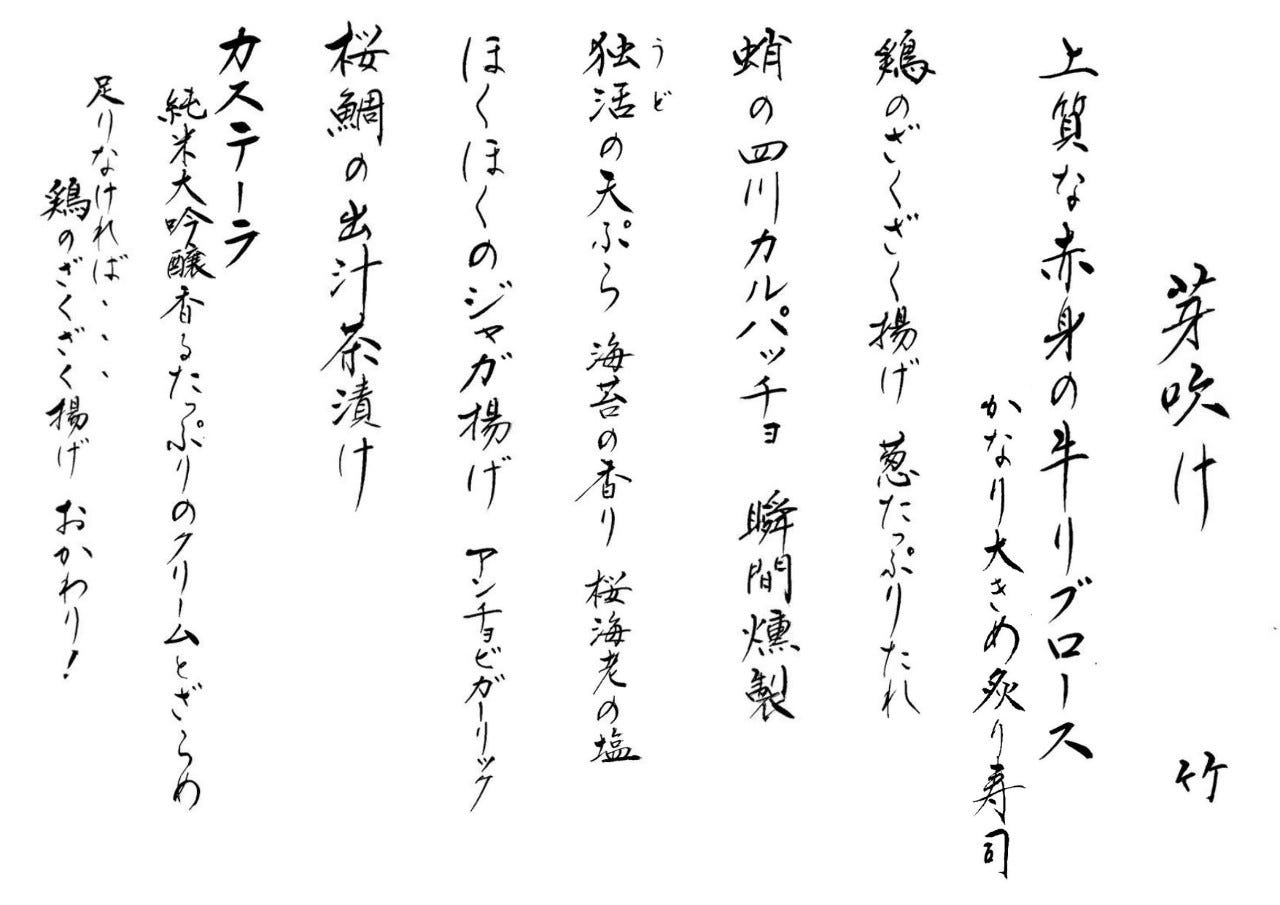 芽吹け 竹
上質な赤身の牛リブロース
かなり大きめ炙り寿司
鶏のざくざく揚げ 葱たっぷりたれ
蛸の四川カルパッチョ 瞬間燻製
うど
独活の天ぷら 海苔の香り 桜海老の塩
ほくほくのジャガ揚げ アンチョビガーリック
桜鯛の出汁茶漬け
カステーラ
純米大吟醸香るたっぷりのクリームとざらめ
足りなければ、、、
鶏のざくざく揚げ おかわり!